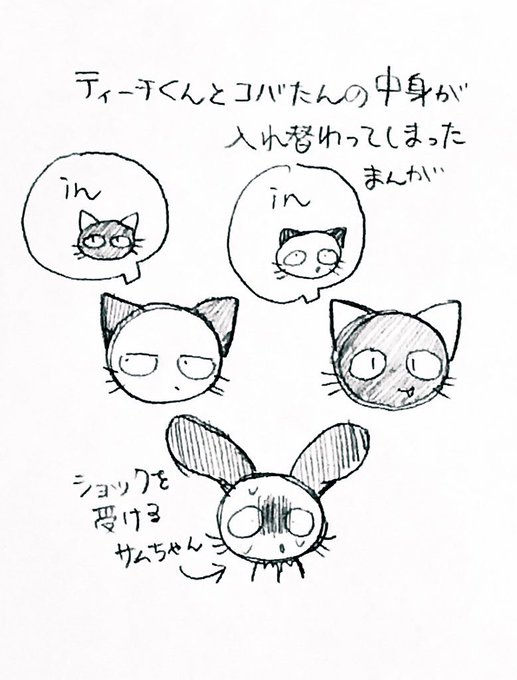 ティーチくんとコバたんの中身が
入れ替わってしまった
まんが
in
in
ショックを
受ける
サムちゃん